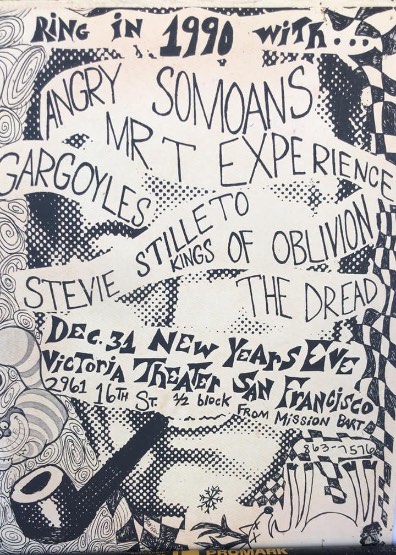 RING IN 1990 WITH...
ANGRY SOMOANS
MR T EXPERIENCE
GARGOYLES
STEVIE STILLETO
KINGS OF OBLIVION
THE DREAD
DEC. 31 NEW YEARS EVE
VICTORIA THEATER SAN FRANCISCO
2961 16TH ST. 1/2 block FROM MISSION BART
863-7576
PROMARK